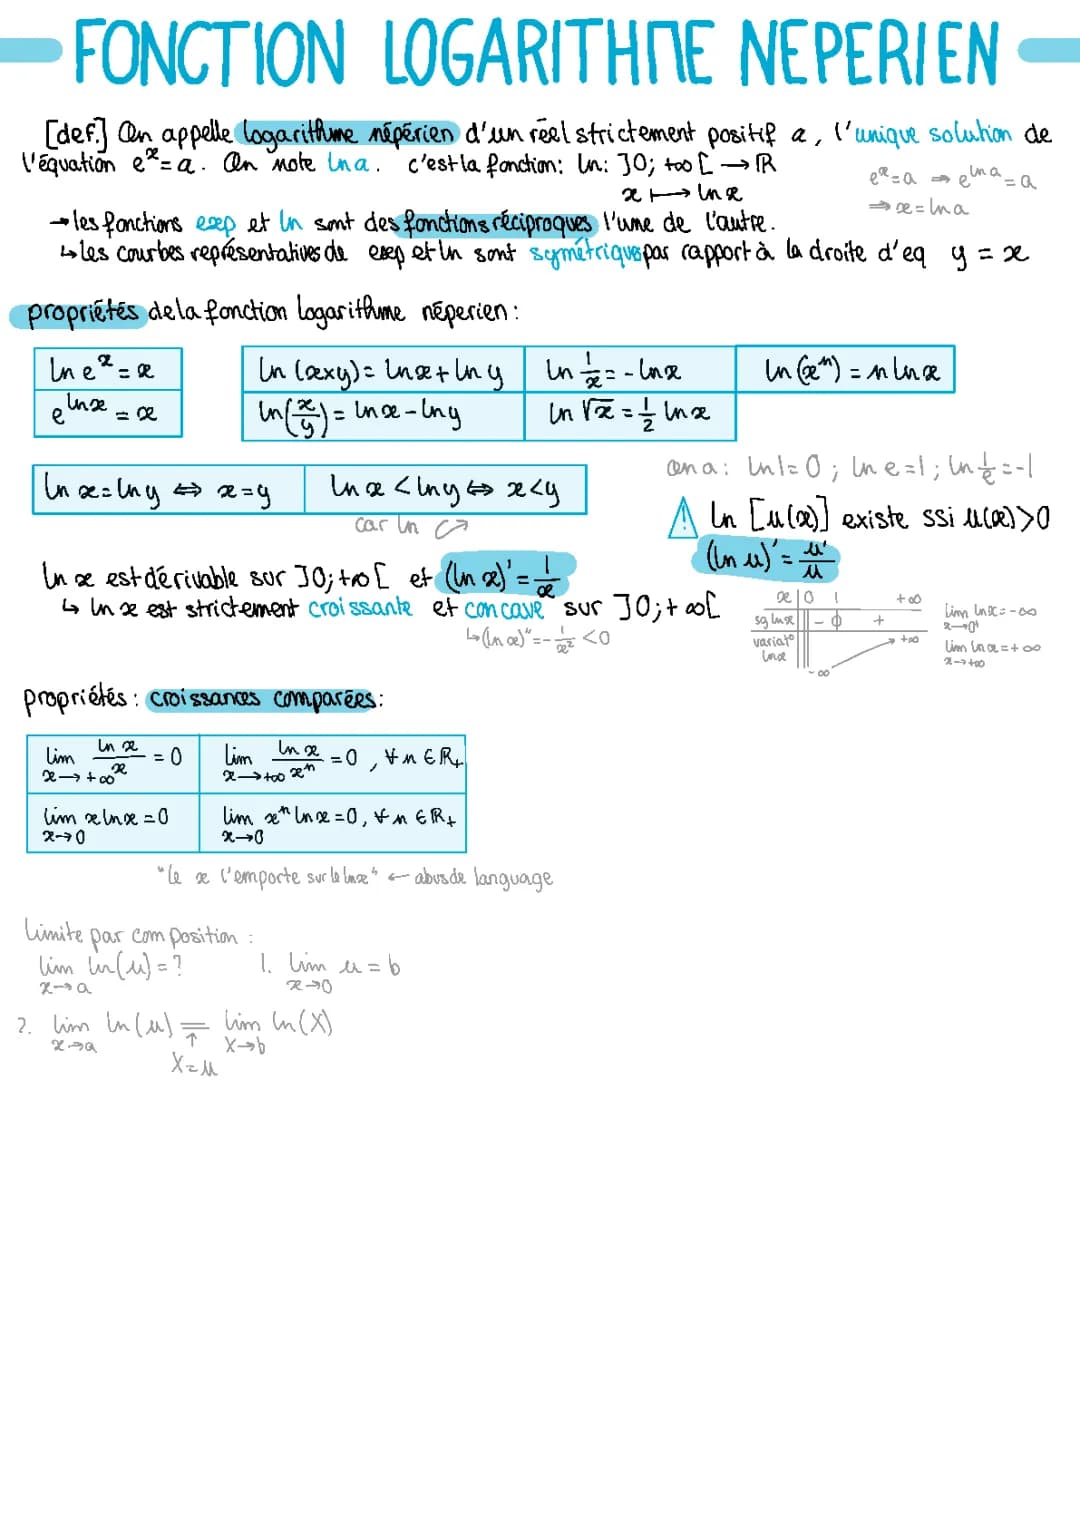 FONCTION LOGARITHME NEPERIEN
[def.] On appelle logarithme népérien d'un réel strictement positif a, l'unique solution de
l'équation eˣ = a. On note ln a. c'est la fonction: ln: ]0; +∞[ → ℝ
x ↦ ln x
eˣ = a ⇒ e^(ln a) = a
⇒ x = ln a
→ les fonctions exp et ln sont des fonctions réciproques l'une de l'autre.
↳ les courbes représentatives de exp et ln sont symétriques par rapport à la droite d'eq y = x
propriétés de la fonction logarithme néperien :
ln eˣ = x
e^(ln x) = x
ln (x×y) = ln x + ln y
ln 1/x = - ln x
ln (xⁿ) = n ln x
ln(x/y) = ln x - ln y
ln √x = 1/2 ln x
ln x = ln y ⇔ x = y
ln x < ln y ⇔ x < y
car ln ↗
on a : ln 1 = 0 ; ln e = 1 ; ln 1/e = -1
⚠ ln [u(x)] existe ssi u(x) > 0
(ln u)' = u'/u
ln x est dérivable sur ]0; +∞[ et (ln x)' = 1/x
↳ ln x est strictement croissante et concave sur ]0; +∞[
↳ (ln x)" = - 1/x² < 0
x | 0 1 +∞
sg ln x || - 0 +
variat° ln x || -∞ → +∞
lim ln x = -∞
x→0⁺
lim ln x = +∞
x→+∞
propriétés : croissances comparées :
lim ln x / x = 0
x→+∞
lim ln x / xⁿ = 0, ∀ n ∈ ℝ₊
x→+∞
lim x ln x = 0
x→0
lim xⁿ ln x = 0, ∀ n ∈ ℝ₊
x→0
"le x l'emporte sur le ln x" ← abus de language
limite par composition :
lim ln(u) = ?
x→a
1. lim u = b
x→0
2. lim ln(u) = lim ln(X)
x→a ↑ X→b
X = u